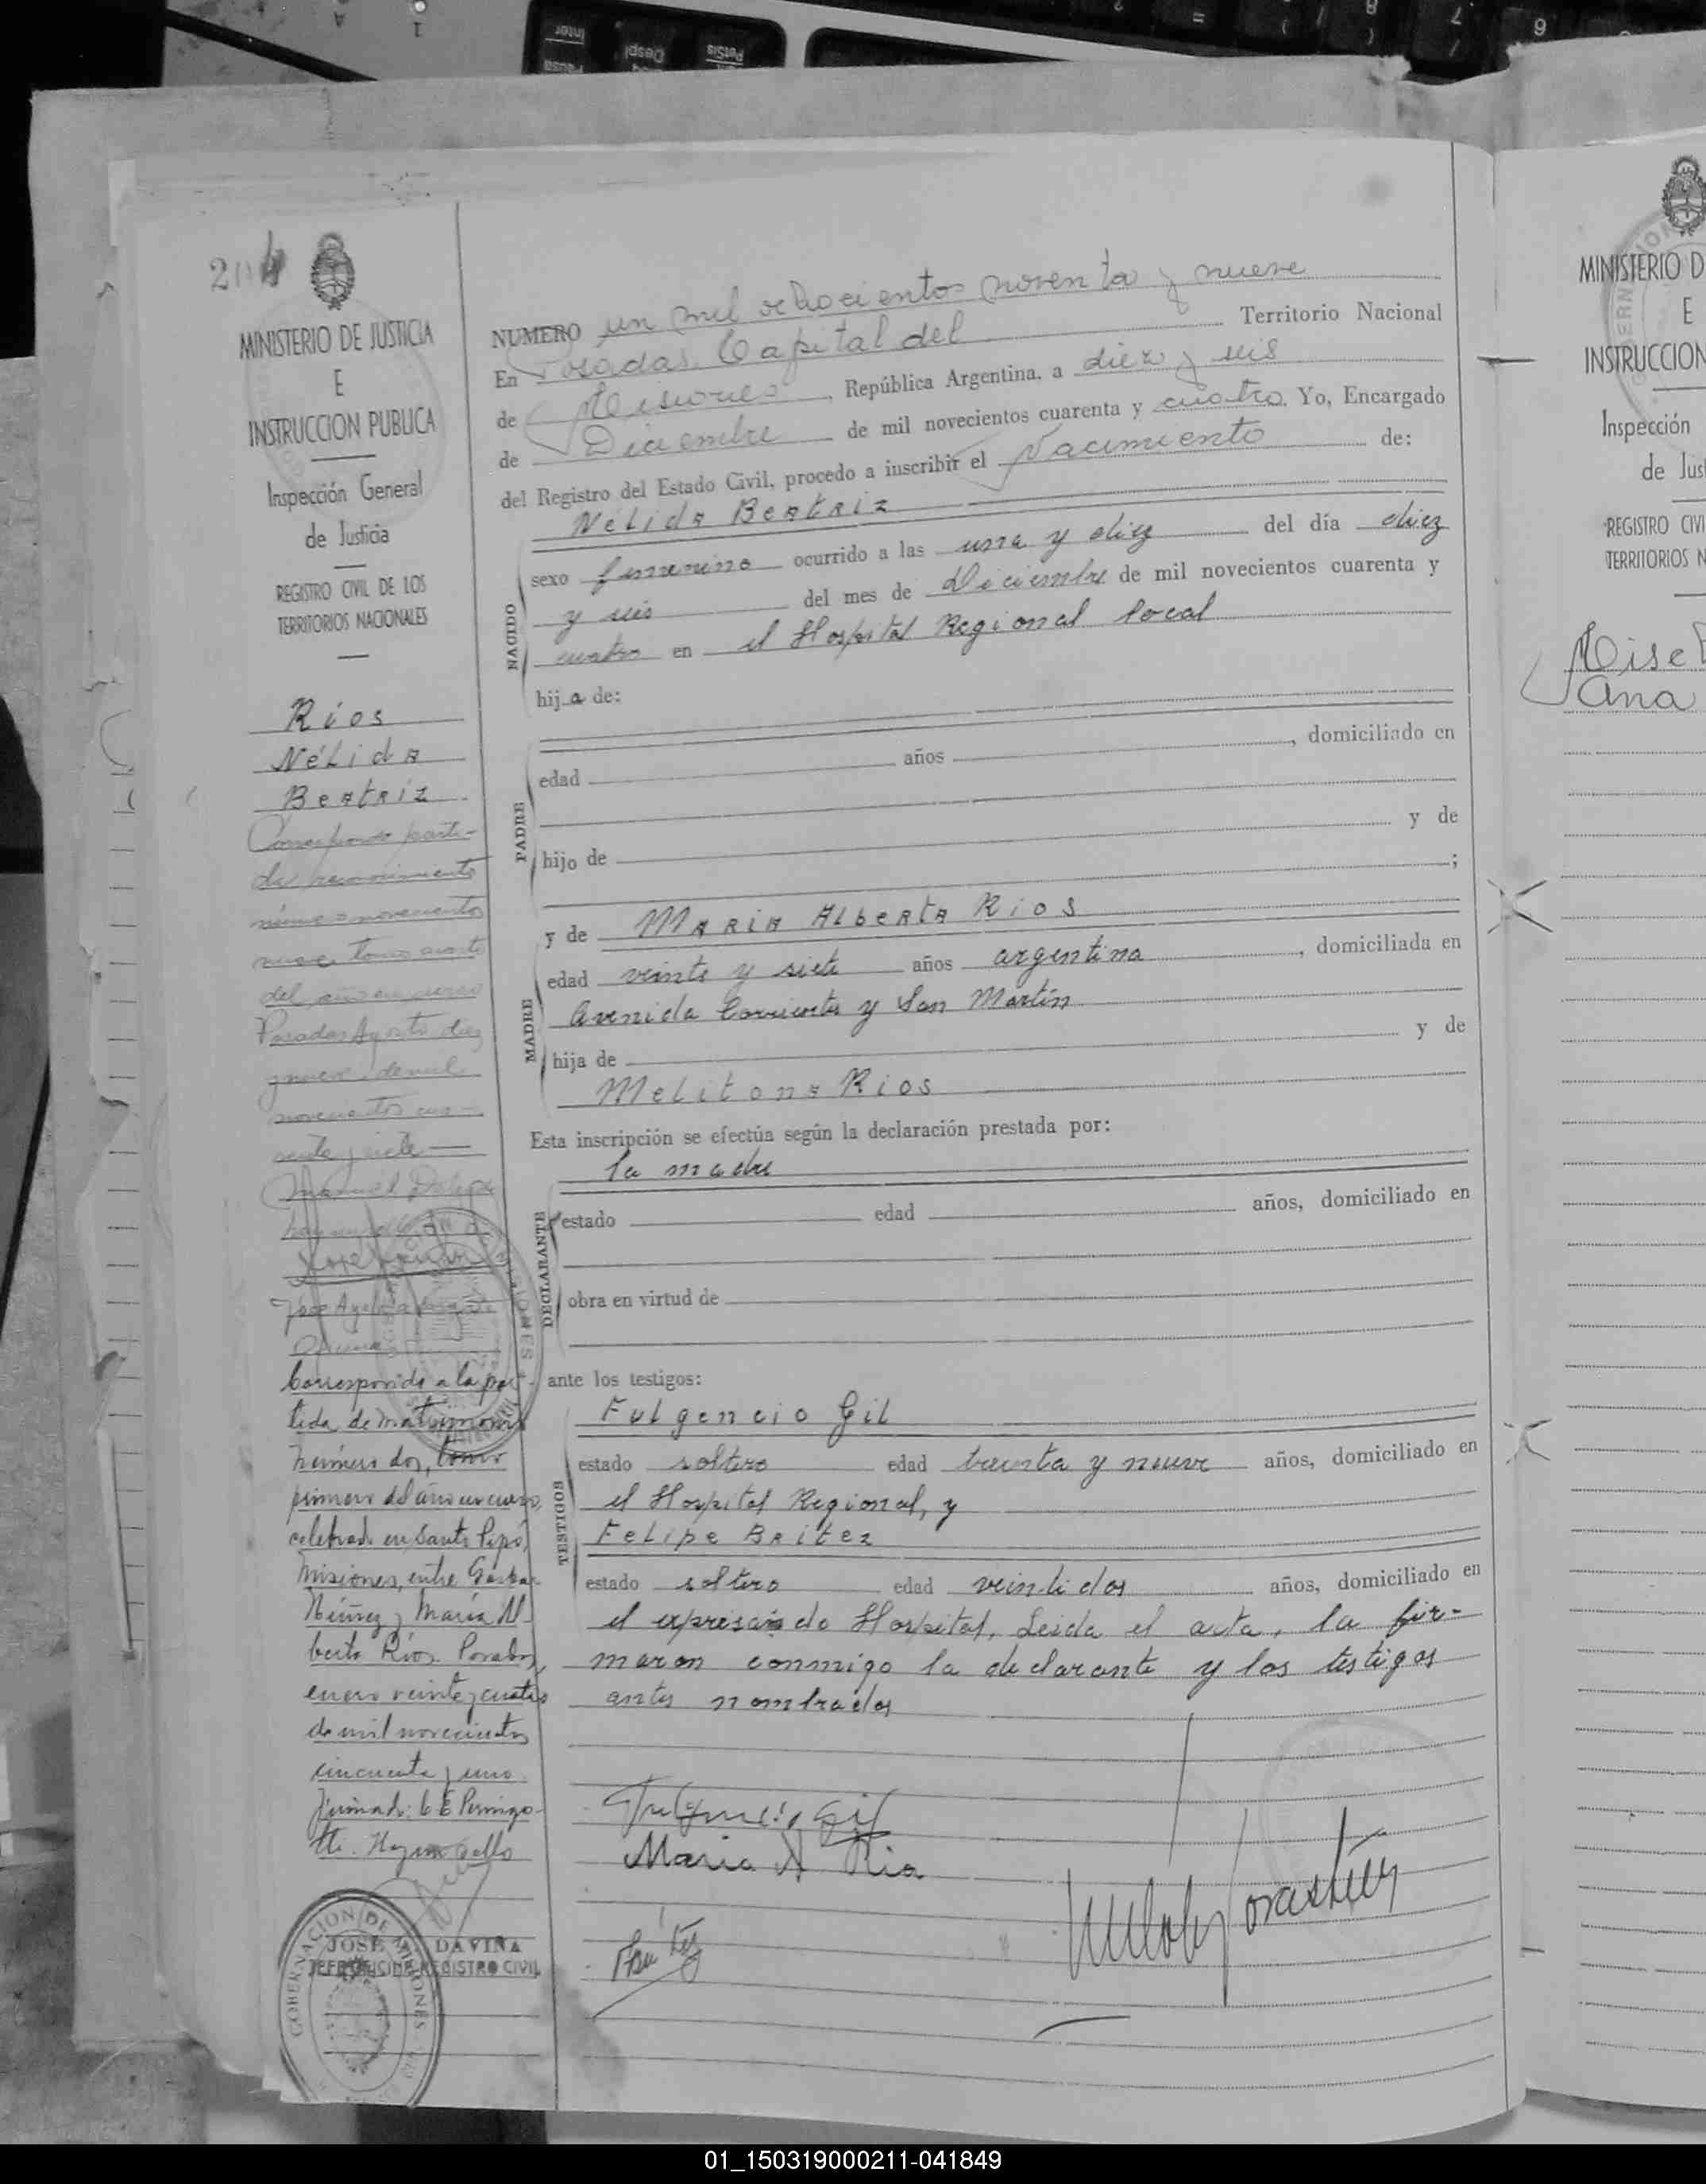 MINISTERIO DE JUSTICIA
E
INSTRUCCION PUBLICA
Inspección General
de Justicia
REGISTRO CIVIL DE LOS
TERRITORIOS NACIONALES
Ríos
Nélida
Beatriz
Corresponde parti-
da reconocimiento
número novecientos
nueve tomo cuarto
del año en curso
Posadas Agosto diez
y nueve de mil
novecientos cua-
renta y siete
Manuel
José
Corresponde a la par-
tida de matrimonio
número dos, tomo
primero del año en curso,
celebrado en Santo Pipó,
Misiones, entre Gaspar
Núñez y María Al-
berta Ríos. Posadas,
enero veinte y cuatro
de mil novecientos
cincuenta y uno.
Firmado:
JOSE DAVIÑA
JEFE OFICINA REGISTRO CIVIL
GOBERNACION DE MISIONES
NUMERO un mil ochocientos noventa y nueve
En Posadas, Capital del Territorio Nacional
de Misiones, República Argentina, a diez y seis
de Diciembre de mil novecientos cuarenta y cuatro Yo, Encargado
del Registro del Estado Civil, procedo a inscribir el Nacimiento de:
Nélida Beatriz
NACIDO
sexo femenino ocurrido a las una y diez del día diez
y seis del mes de Diciembre de mil novecientos cuarenta y
cuatro en el Hospital Regional local
hija de:
PADRE
edad años , domiciliado en
hijo de y de
;
y de MARIA ALBERTA RIOS
MADRE
edad veinte y siete años argentina, domiciliada en
Avenida Corrientes y San Martín
hija de y de
Melitona Rios
Esta inscripción se efectúa según la declaración prestada por:
la madre
DECLARANTE
estado edad años, domiciliado en
obra en virtud de
ante los testigos:
Fulgencio Gil
TESTIGOS
estado soltero edad treinta y nueve años, domiciliado en
el Hospital Regional, y
Felipe Britez
estado soltero edad veintidos años, domiciliado en
el expresado Hospital. Leida el acta, la fir-
maron conmigo la declarante y los testigos
antes nombrados
Fulgencio Gil
Maria A Rio
MINISTERIO D
E
INSTRUCCION
Inspección
de Jus
REGISTRO CIVI
TERRITORIOS N
Ana
01_150319000211-041849